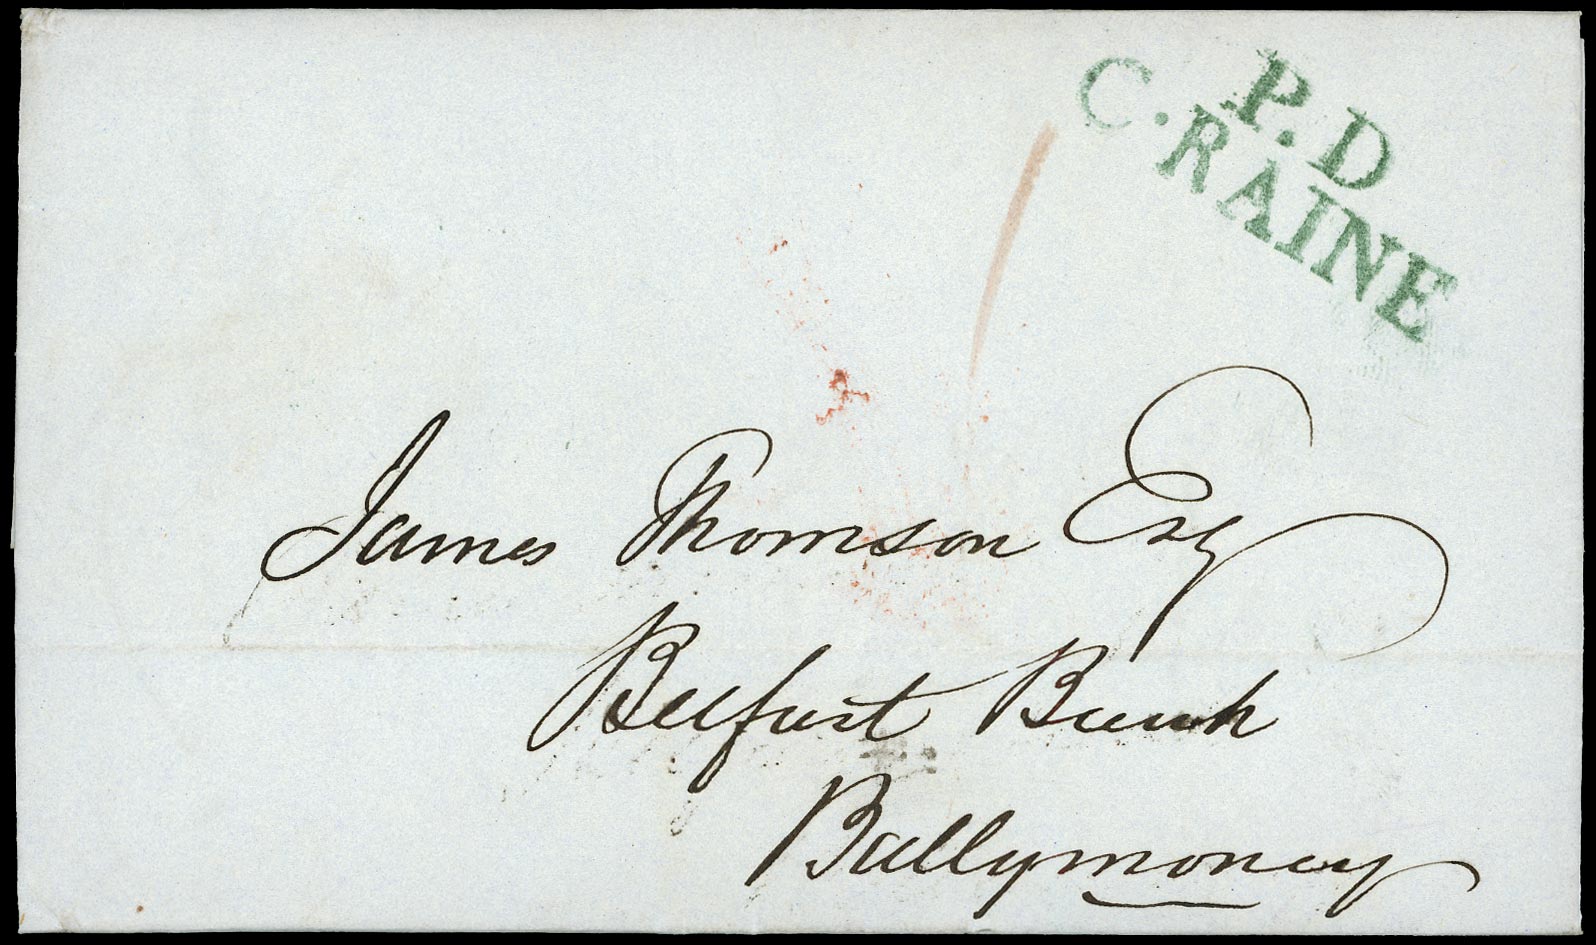 P.D
C.RAINE
James Thomson Esq
Belfast Bank
Ballymoney